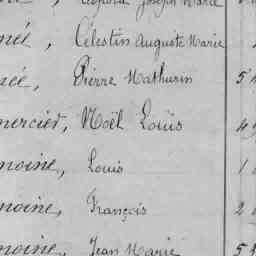 Joseph Marie
née, Célestin Auguste Marie
née, Pierre Mathurin 5
mercier, Noël Louis 4
moine, Louis 1
moine, François 2
moine, Jean Marie 5